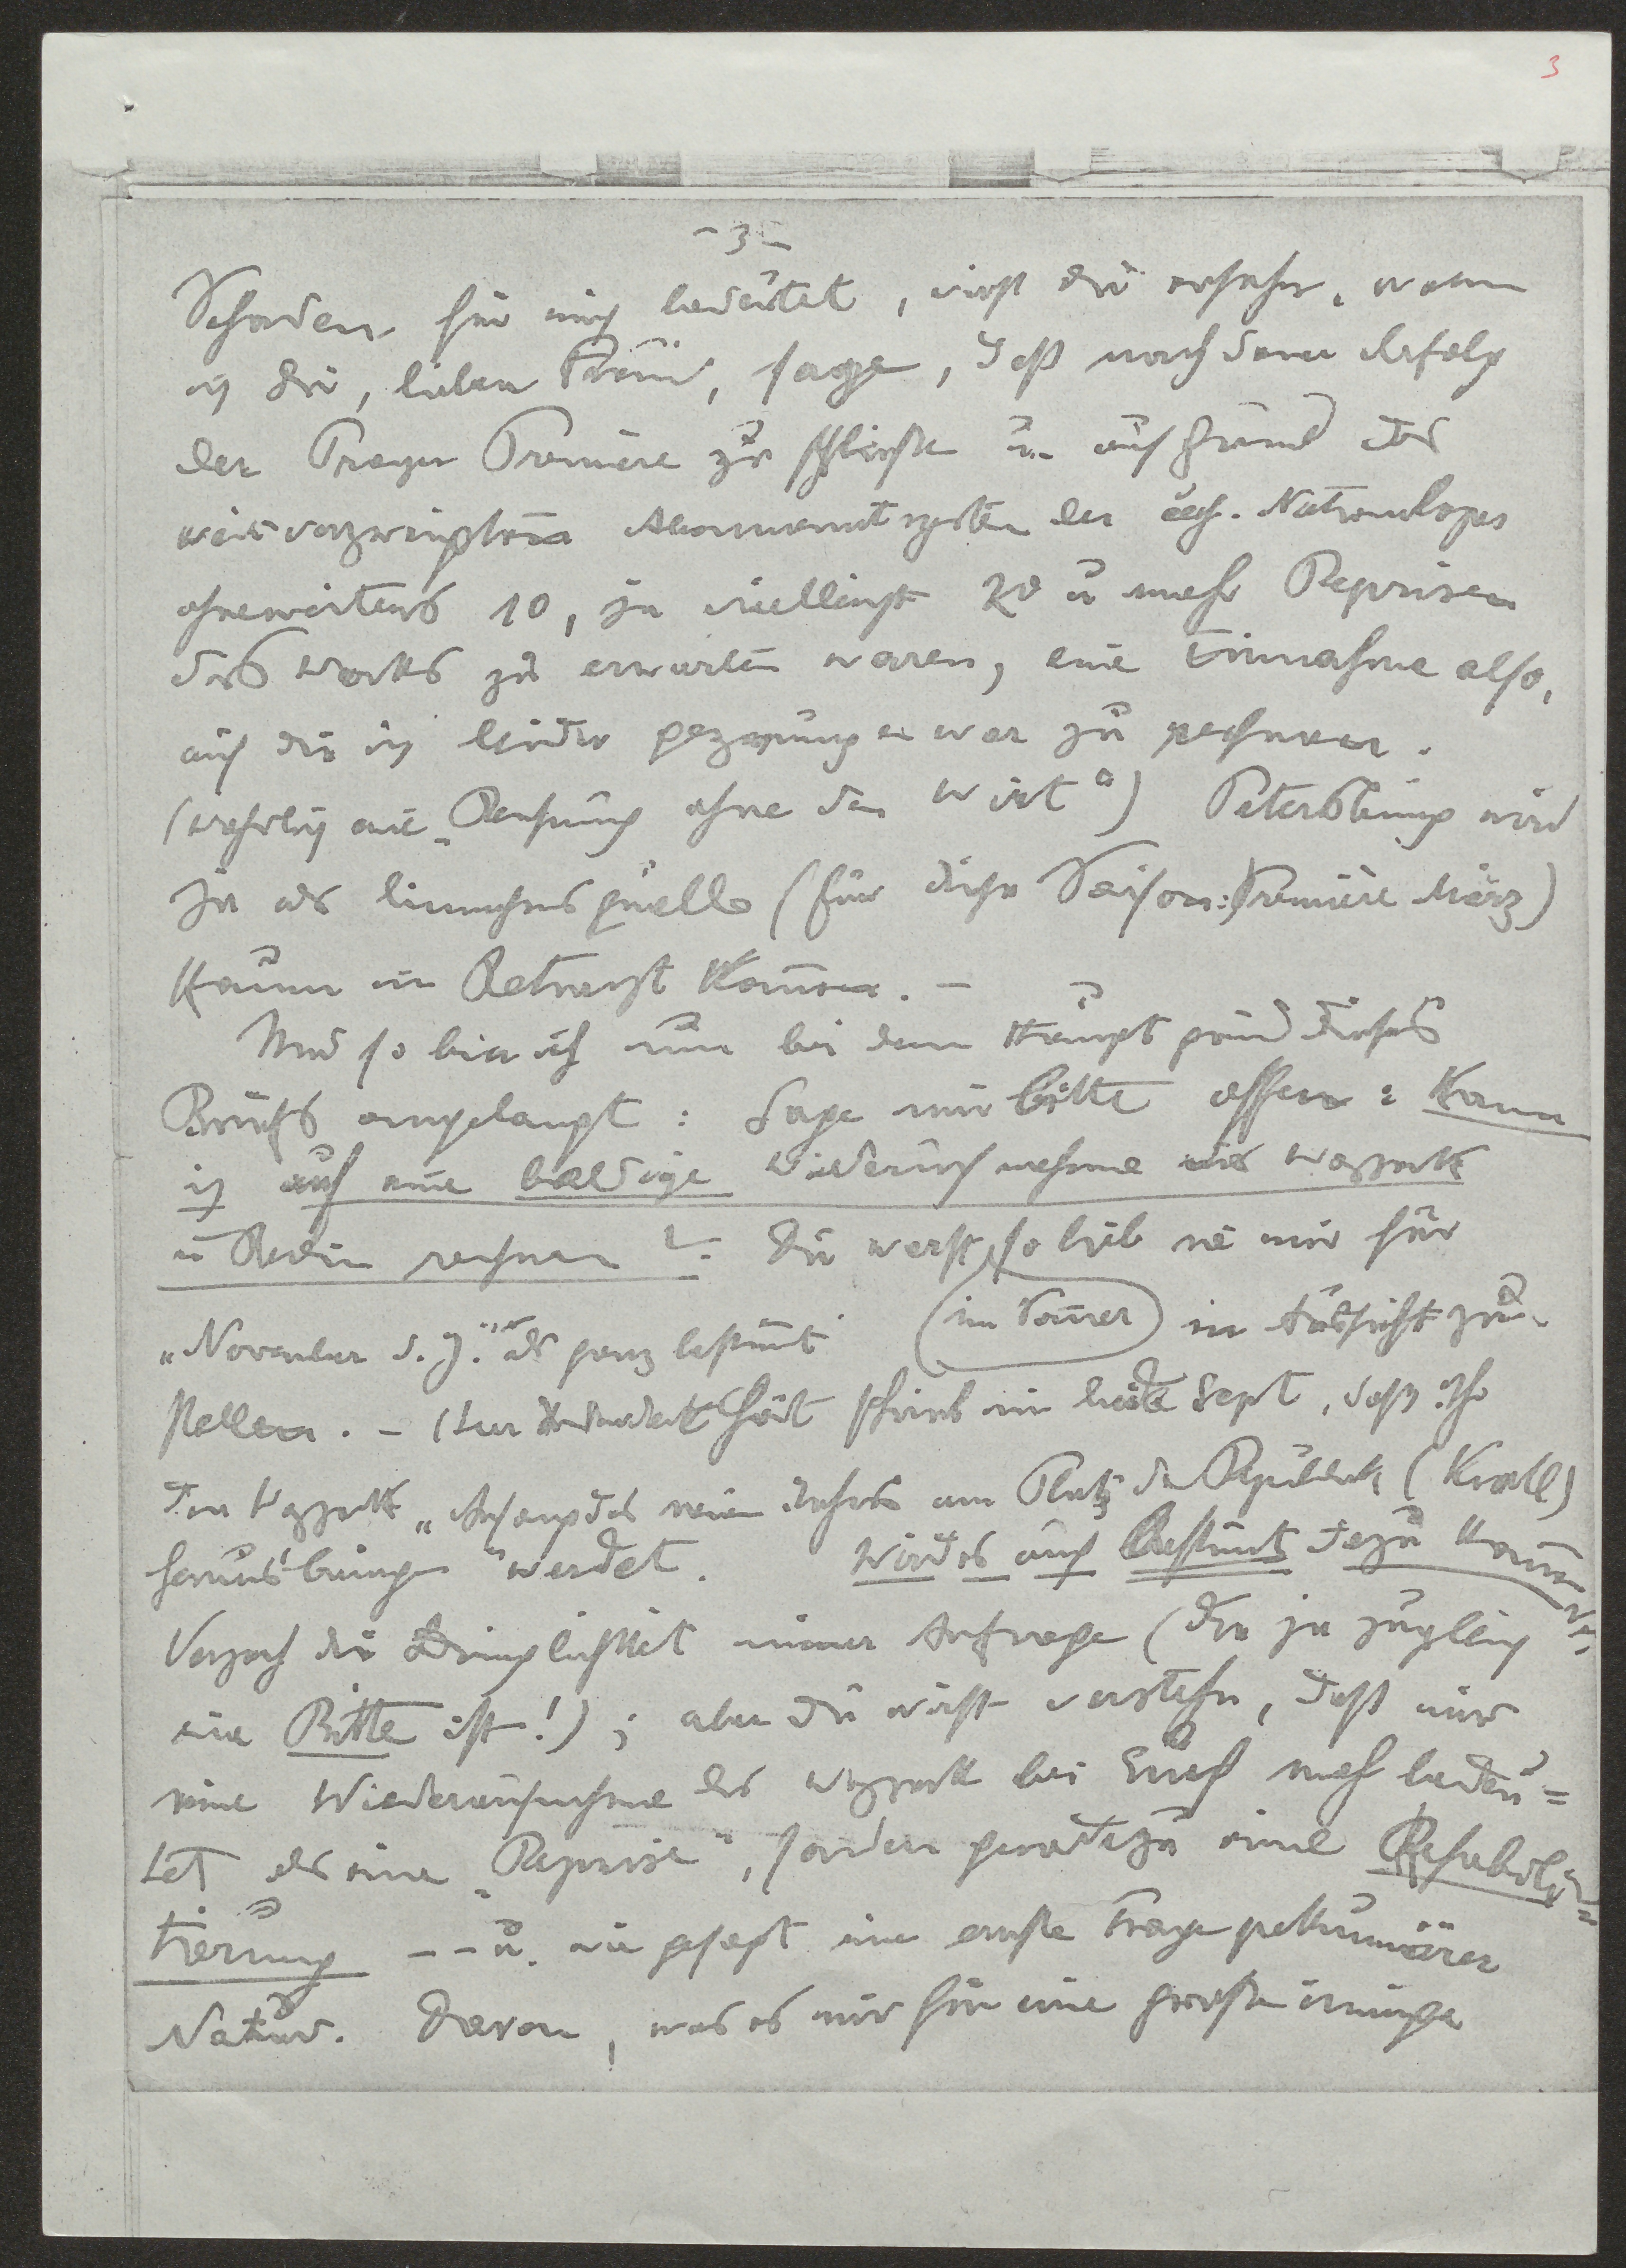 3
- 3 -
Schaden für mich bedeutet, wirst Du ersehen, wenn
ich Dir, lieber Freund, sage, daß nach dem Erfolg
der Prager Première zu schließen u. auf Grund des
weitverzweigten Abonnementsystem der čech. Nationaloper
ohneweiters 10, ja vielleicht 20 u mehr Reprisen
des Werks zu erwarten waren, eine Einnahme also,
auf die ich leider gezwungen war zu rechnen.
(wahrlich eine „Rechnung ohne den Wirt") Petersburg wird
ja als Einnahmsquelle (für diese Saison: Première März)
kaum in Betracht kommen. -
Und so bin ich nun bei dem Hauptgrund dieses
Briefs angelangt: Sage mir bitte offen: Kann
ich auf eine baldige Wiederaufnahme des Wozzeck
in Berlin rechnen? Du warst so lieb sie mir für
„November d. J." als ganz bestimmt (im Sommer) in Aussicht zu
stellen. - (Kurz schrieb mir Ende Sept, daß Ihr
den Wozzeck „Anfang des neuen Jahres am Platz der Republik (Kroll)
herausbringen" werdet. Wird es auch bestimmt dazu kommen?
Verzeih die Dringlichkeit meiner Anfrage (die ja zugleich
eine Bitte ist!); aber Du wirst verstehn, daß mir
eine Wiederaufnahme des Wozzeck bei Euch mehr bedeu=
tet als eine „Reprise", sondern geradezu eine Rehabili=
tierung -- u. wie gesagt eine ernste Frage pekuniärer
Natur. Davon, was es mir für eine große innige